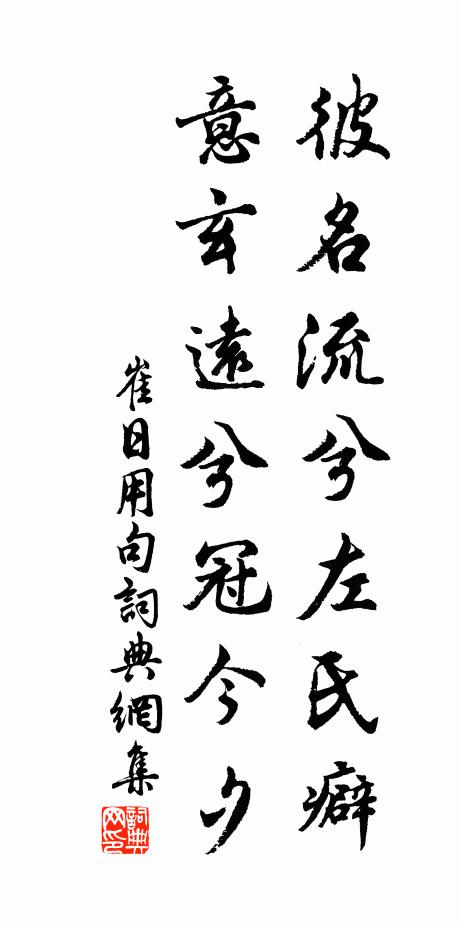 彼名流兮左氏癖
意玄遠兮冠今夕
崔日用句詞典網集
詞典
网印